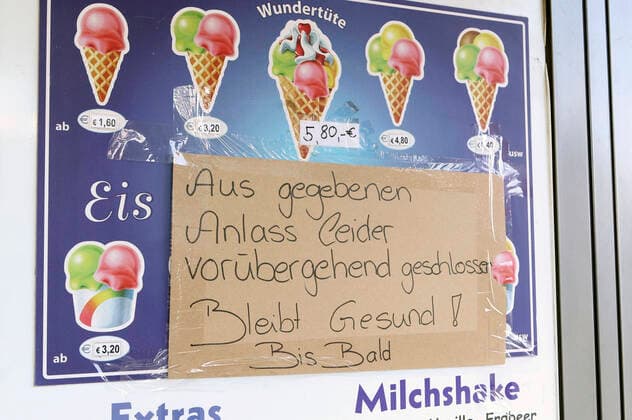 Wundertüte
ab € 1,60
€ 3,20
5,80,-€
€ 4,80
usw
Eis
Aus gegebenen
Anlass Leider
vorübergehend geschlossen
Bleibt Gesund!
Bis Bald
ab € 3,20
usw
Milchshake
Extras
Erdbeer